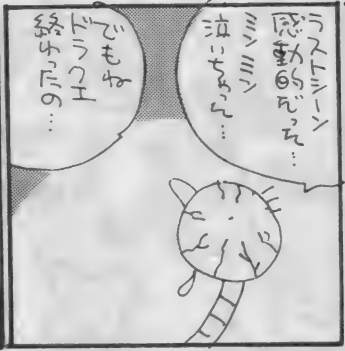 ラストシーン
感動的だった…
ミンミン
泣いちゃった…
でもね
ドラクエ
終わったの…